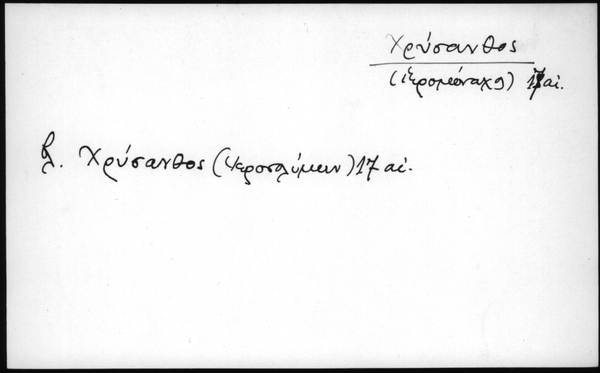 Χρύσανθος
(ἱερομόναχος) 17 αἰ.
βλ. Χρύσανθος (Ἱεροσολύμων) 17 αἰ.